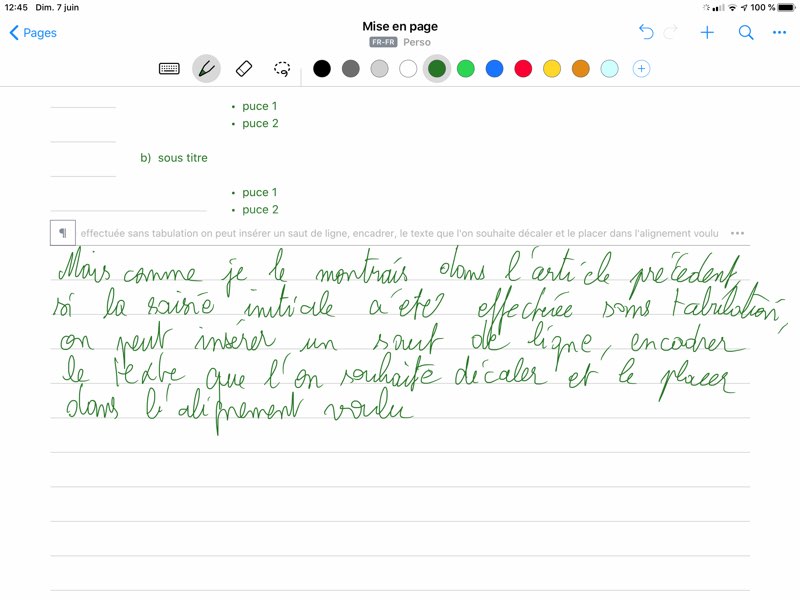 12:45 Dim. 7 juin 100 %
Pages
Mise en page
FR-FR Perso
• puce 1
• puce 2
b) sous titre
• puce 1
• puce 2
¶ effectuée sans tabulation on peut insérer un saut de ligne, encadrer, le texte que l'on souhaite décaler et le placer dans l'alignement voulu •••
Mais comme je le montrais dans l'article précédent,
si la saisie initiale a été effectuée sans tabulation,
on peut insérer un saut de ligne, encadrer
le texte que l'on souhaite décaler et le placer
dans l'alignement voulu